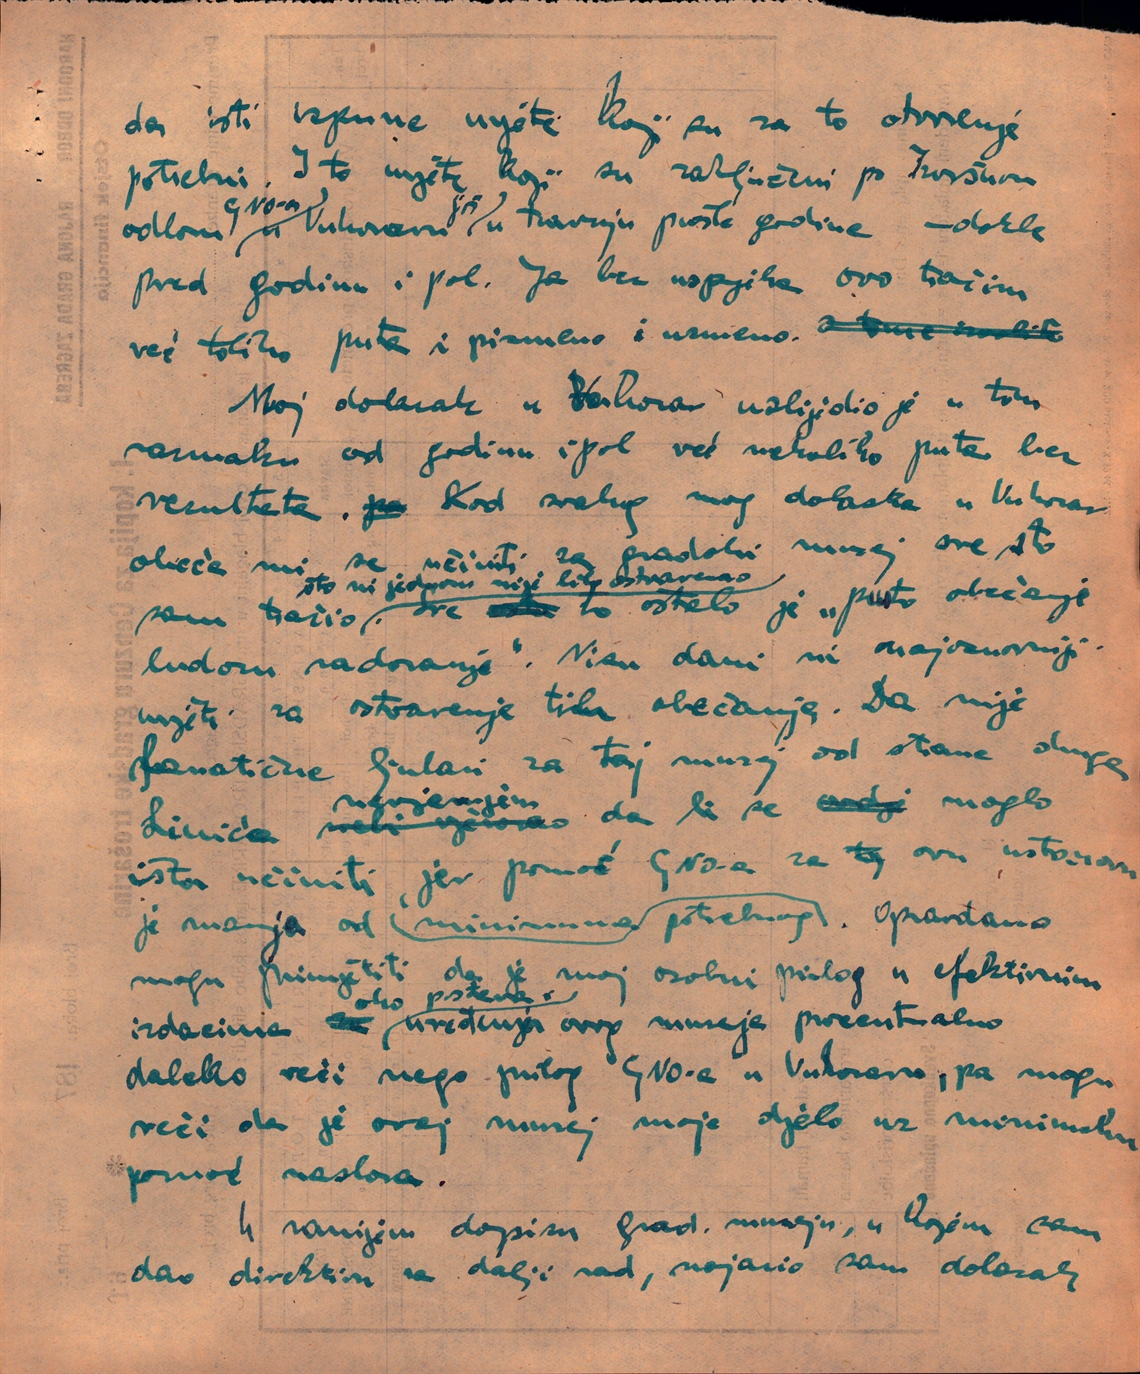 da isti ispune uvjete koji su za to otvorenje
potrebni. I to uvjete koji su zaključeni po Izvršnom
odboru GNO-a u Vukovaru još u travnju prošle godine – dakle
pred godinu i pol. Ja bez uspjeha ovo tražim
već toliko puta i pismeno i usmeno.
Moj dolazak u Vukovar uslijedio je u tom
razmaku od godinu i pol već nekoliko puta bez
rezultata. pa Kod svakog mog dolaska u Vukovar
obeća mi se učiniti za gradski muzej sve što
što ni jednom nije bilo ostvareno
sam tražio. Sve to ostalo je „pusto obećanje
ludom radovanje“. Nisu dani ni najosnovniji
uvjeti za ostvarenje tih obećanja. Da nije
fanatične ljubavi za taj muzej od strane druga
nevjerujem
Linića da li se ovdje moglo
išta učiniti, jer pomoć GNO-a za taj ovu ustanovu
je manja od minimuma potrebnog. Opravdano
mogu primjetiti da je moj osobni prilog u efektivnim
oko postava i
izdacima za uređenja ovog muzeja procentualno
daleko veći nego prilog GNO-a u Vukovaru, pa mogu
reći da je ovaj muzej moje djelo uz minimalnu
pomoć naslova.
U ranijem dopisu grad. muzeju, u kojem sam
dao direktivu za dalji rad, najavio sam dolazak
NARODNI ODBOR RAJONA GRADA ZAGREBA
Odsjek financija